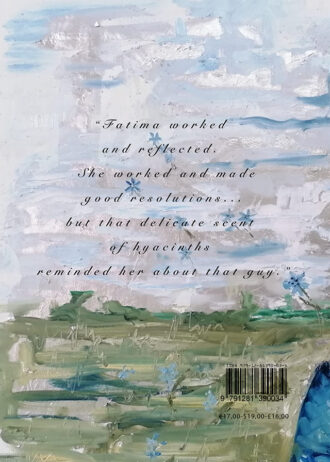 “Fatima worked
and reflected.
She worked and made
good resolutions...
but that delicate scent
of hyacinths
reminded her about that guy.”
9 791281 390034
€17,00-$19,00-£16,00